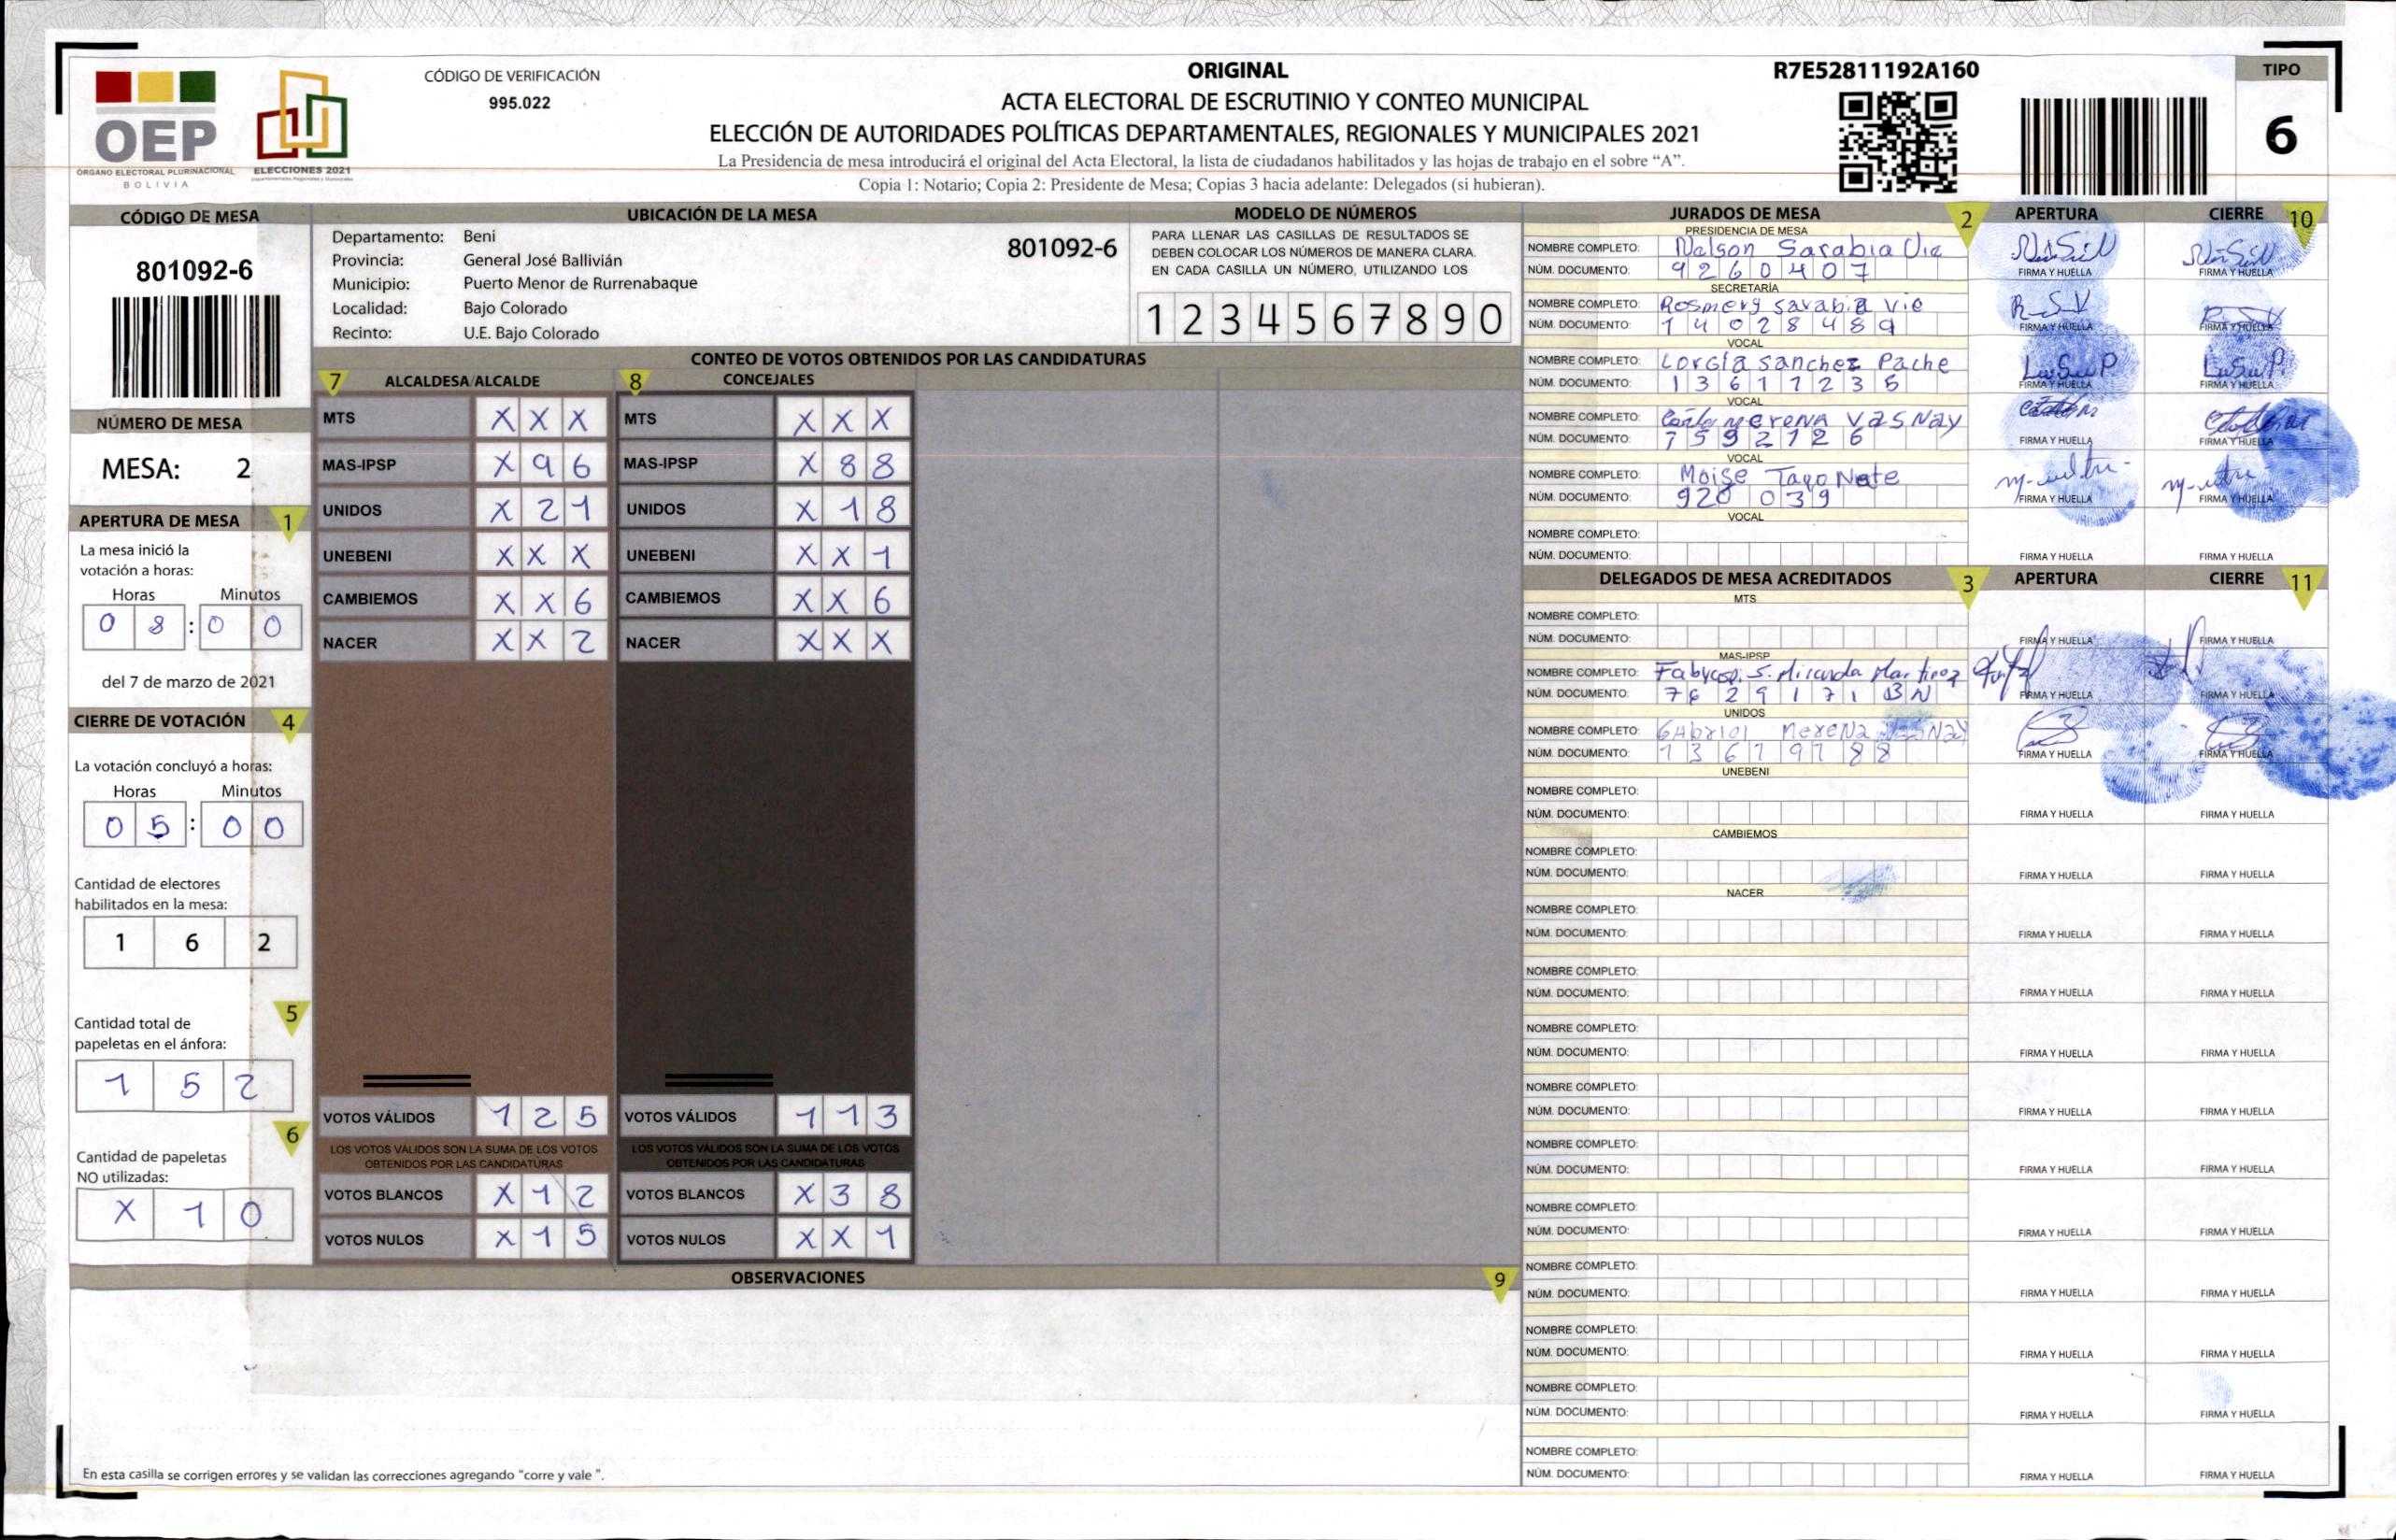 OEP
ÓRGANO ELECTORAL PLURINACIONAL
BOLIVIA
ELECCIONES 2021
CÓDIGO DE VERIFICACIÓN
995.022
ORIGINAL
ACTA ELECTORAL DE ESCRUTINIO Y CONTEO MUNICIPAL
ELECCIÓN DE AUTORIDADES POLÍTICAS DEPARTAMENTALES, REGIONALES Y MUNICIPALES 2021
La Presidencia de mesa introducirá el original del Acta Electoral, la lista de ciudadanos habilitados y las hojas de trabajo en el sobre “A”.
Copia 1: Notario; Copia 2: Presidente de Mesa; Copias 3 hacia adelante: Delegados (si hubieran).
R7E52811192A160
TIPO
6
CÓDIGO DE MESA
801092-6
NÚMERO DE MESA
MESA: 2
APERTURA DE MESA 1
La mesa inició la
votación a horas:
Horas Minutos
0 8 : 0 0
del 7 de marzo de 2021
CIERRE DE VOTACIÓN 4
La votación concluyó a horas:
Horas Minutos
0 5 : 0 0
Cantidad de electores
habilitados en la mesa:
1 6 2
5
Cantidad total de
papeletas en el ánfora:
1 5 2
6
Cantidad de papeletas
NO utilizadas:
X 1 0
UBICACIÓN DE LA MESA
Departamento: Beni
801092-6
Provincia: General José Ballivián
Municipio: Puerto Menor de Rurrenabaque
Localidad: Bajo Colorado
Recinto: U.E. Bajo Colorado
MODELO DE NÚMEROS
PARA LLENAR LAS CASILLAS DE RESULTADOS SE
DEBEN COLOCAR LOS NÚMEROS DE MANERA CLARA.
EN CADA CASILLA UN NÚMERO, UTILIZANDO LOS
1 2 3 4 5 6 7 8 9 0
CONTEO DE VOTOS OBTENIDOS POR LAS CANDIDATURAS
7 ALCALDESA/ALCALDE
MTS X X X
MAS-IPSP X 9 6
UNIDOS X 2 1
UNEBENI X X X
CAMBIEMOS X X 6
NACER X X 2
VOTOS VÁLIDOS 1 2 5
LOS VOTOS VÁLIDOS SON LA SUMA DE LOS VOTOS
OBTENIDOS POR LAS CANDIDATURAS
VOTOS BLANCOS X 1 2
VOTOS NULOS X 1 5
8 CONCEJALES
MTS X X X
MAS-IPSP X 8 8
UNIDOS X 1 8
UNEBENI X X 1
CAMBIEMOS X X 6
NACER X X X
VOTOS VÁLIDOS 1 1 3
LOS VOTOS VÁLIDOS SON LA SUMA DE LOS VOTOS
OBTENIDOS POR LAS CANDIDATURAS
VOTOS BLANCOS X 3 8
VOTOS NULOS X X 1
OBSERVACIONES 9
En esta casilla se corrigen errores y se validan las correcciones agregando “corre y vale ”.
JURADOS DE MESA 2 APERTURA CIERRE 10
PRESIDENCIA DE MESA
NOMBRE COMPLETO: Nelson Sarabia Vie
NÚM. DOCUMENTO: 9 2 6 0 4 0 7 FIRMA Y HUELLA FIRMA Y HUELLA
SECRETARÍA
NOMBRE COMPLETO: Rosmery Sarabia Vie
NÚM. DOCUMENTO: 1 4 0 2 8 4 8 9 FIRMA Y HUELLA FIRMA Y HUELLA
VOCAL
NOMBRE COMPLETO: Lorgia Sanchez Pache
NÚM. DOCUMENTO: 1 3 6 1 1 2 3 5 FIRMA Y HUELLA FIRMA Y HUELLA
VOCAL
NOMBRE COMPLETO: merena VasNay
NÚM. DOCUMENTO: 7 5 9 2 1 2 6 FIRMA Y HUELLA FIRMA Y HUELLA
VOCAL
NOMBRE COMPLETO: Moise Tayo Nate
NÚM. DOCUMENTO: 920 039 FIRMA Y HUELLA FIRMA Y HUELLA
VOCAL
NOMBRE COMPLETO:
NÚM. DOCUMENTO: FIRMA Y HUELLA FIRMA Y HUELLA
DELEGADOS DE MESA ACREDITADOS 3 APERTURA CIERRE 11
MTS
NOMBRE COMPLETO:
NÚM. DOCUMENTO: FIRMA Y HUELLA FIRMA Y HUELLA
MAS-IPSP
NOMBRE COMPLETO: S. Miranda Martinez
NÚM. DOCUMENTO: 7 6 2 9 1 7 1 BN FIRMA Y HUELLA FIRMA Y HUELLA
UNIDOS
NOMBRE COMPLETO: GAbriel MereNa
NÚM. DOCUMENTO: 1 3 6 1 9 1 8 8 FIRMA Y HUELLA FIRMA Y HUELLA
UNEBENI
NOMBRE COMPLETO:
NÚM. DOCUMENTO: FIRMA Y HUELLA FIRMA Y HUELLA
CAMBIEMOS
NOMBRE COMPLETO:
NÚM. DOCUMENTO: FIRMA Y HUELLA FIRMA Y HUELLA
NACER
NOMBRE COMPLETO:
NÚM. DOCUMENTO: FIRMA Y HUELLA FIRMA Y HUELLA
NOMBRE COMPLETO:
NÚM. DOCUMENTO: FIRMA Y HUELLA FIRMA Y HUELLA
NOMBRE COMPLETO:
NÚM. DOCUMENTO: FIRMA Y HUELLA FIRMA Y HUELLA
NOMBRE COMPLETO:
NÚM. DOCUMENTO: FIRMA Y HUELLA FIRMA Y HUELLA
NOMBRE COMPLETO:
NÚM. DOCUMENTO: FIRMA Y HUELLA FIRMA Y HUELLA
NOMBRE COMPLETO:
NÚM. DOCUMENTO: FIRMA Y HUELLA FIRMA Y HUELLA
NOMBRE COMPLETO:
NÚM. DOCUMENTO: FIRMA Y HUELLA FIRMA Y HUELLA
NOMBRE COMPLETO:
NÚM. DOCUMENTO: FIRMA Y HUELLA FIRMA Y HUELLA
NOMBRE COMPLETO:
NÚM. DOCUMENTO: FIRMA Y HUELLA FIRMA Y HUELLA
NOMBRE COMPLETO:
NÚM. DOCUMENTO: FIRMA Y HUELLA FIRMA Y HUELLA